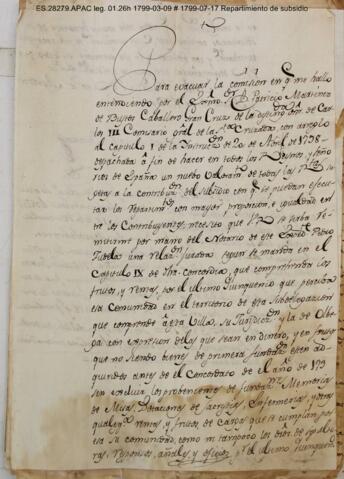 ES.28279.APAC leg. 01.26h 1799-03-09 # 1799-07-17 Repartimiento de subsidio
Para evacuar la comision en q.e me hallo
entendiendo por el Exmo. S.or D. Patricio Martinez
de Bustos Caballero Gran Cruz de la disting.da orn. de Car
los III Comisario gral de la S.ta Cruzada, con arreglo
al capitulo 1 de la Instrucc.on de 20 de Abril de 1798
despachada a fin de hacer en todos los Reynos y Seño
rios de España un nuevo Valoram.to de todas las
sugetas a la contribuc.on del subsidio con q.e se puedan execu
tar los Repartim.tos con mayor proporcion, e igualdad entre
los Contribuyentes, necesito que se sirba re
mitirme por mano del Notario de este
una relac.on jurada segun se manda en el
Capitulo IX de dha. concordia, que comprehenda los
frutos, y rentas, por el ultimo quinquenio que perciba
esa comunidad en el territorio de esta Subdelegacion
que comprende a esta Villa, su Jurisdicc.on y la de
con expresion de las que sean en dinero, y en frutos
que no siendo bienes de primera fundac.on esten ad
quiridos antes de el Concordato de el año de
sin excluir los probenientes de fundac.nes Memorias
de Misas, Dotaciones de Enfermerias, y otras
rentas, y frutos de cargos que se cumplan por
esa su comunidad, como ni tampoco los
responsos, añales, y el ultimo quinquenio